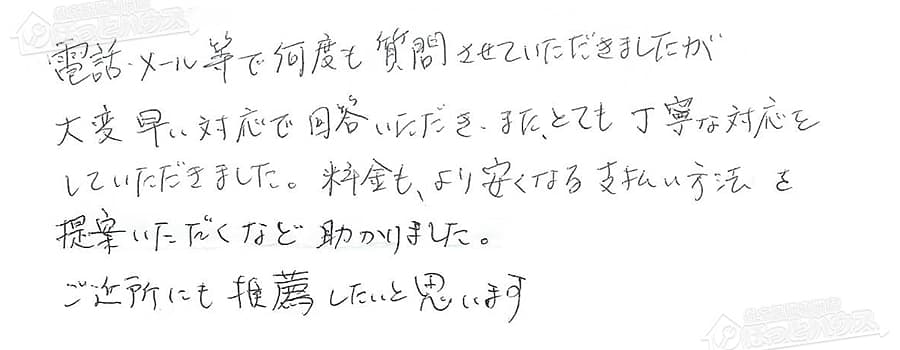 電話・メール等で何度も質問させていただきましたが
大変早い対応で回答いただき、また、とても丁寧な対応を
していただきました。料金も、より安くなる支払い方法を
提案いただくなど助かりました。
ご近所にも推薦したいと思います
ほっとハウス
ほっとハウス